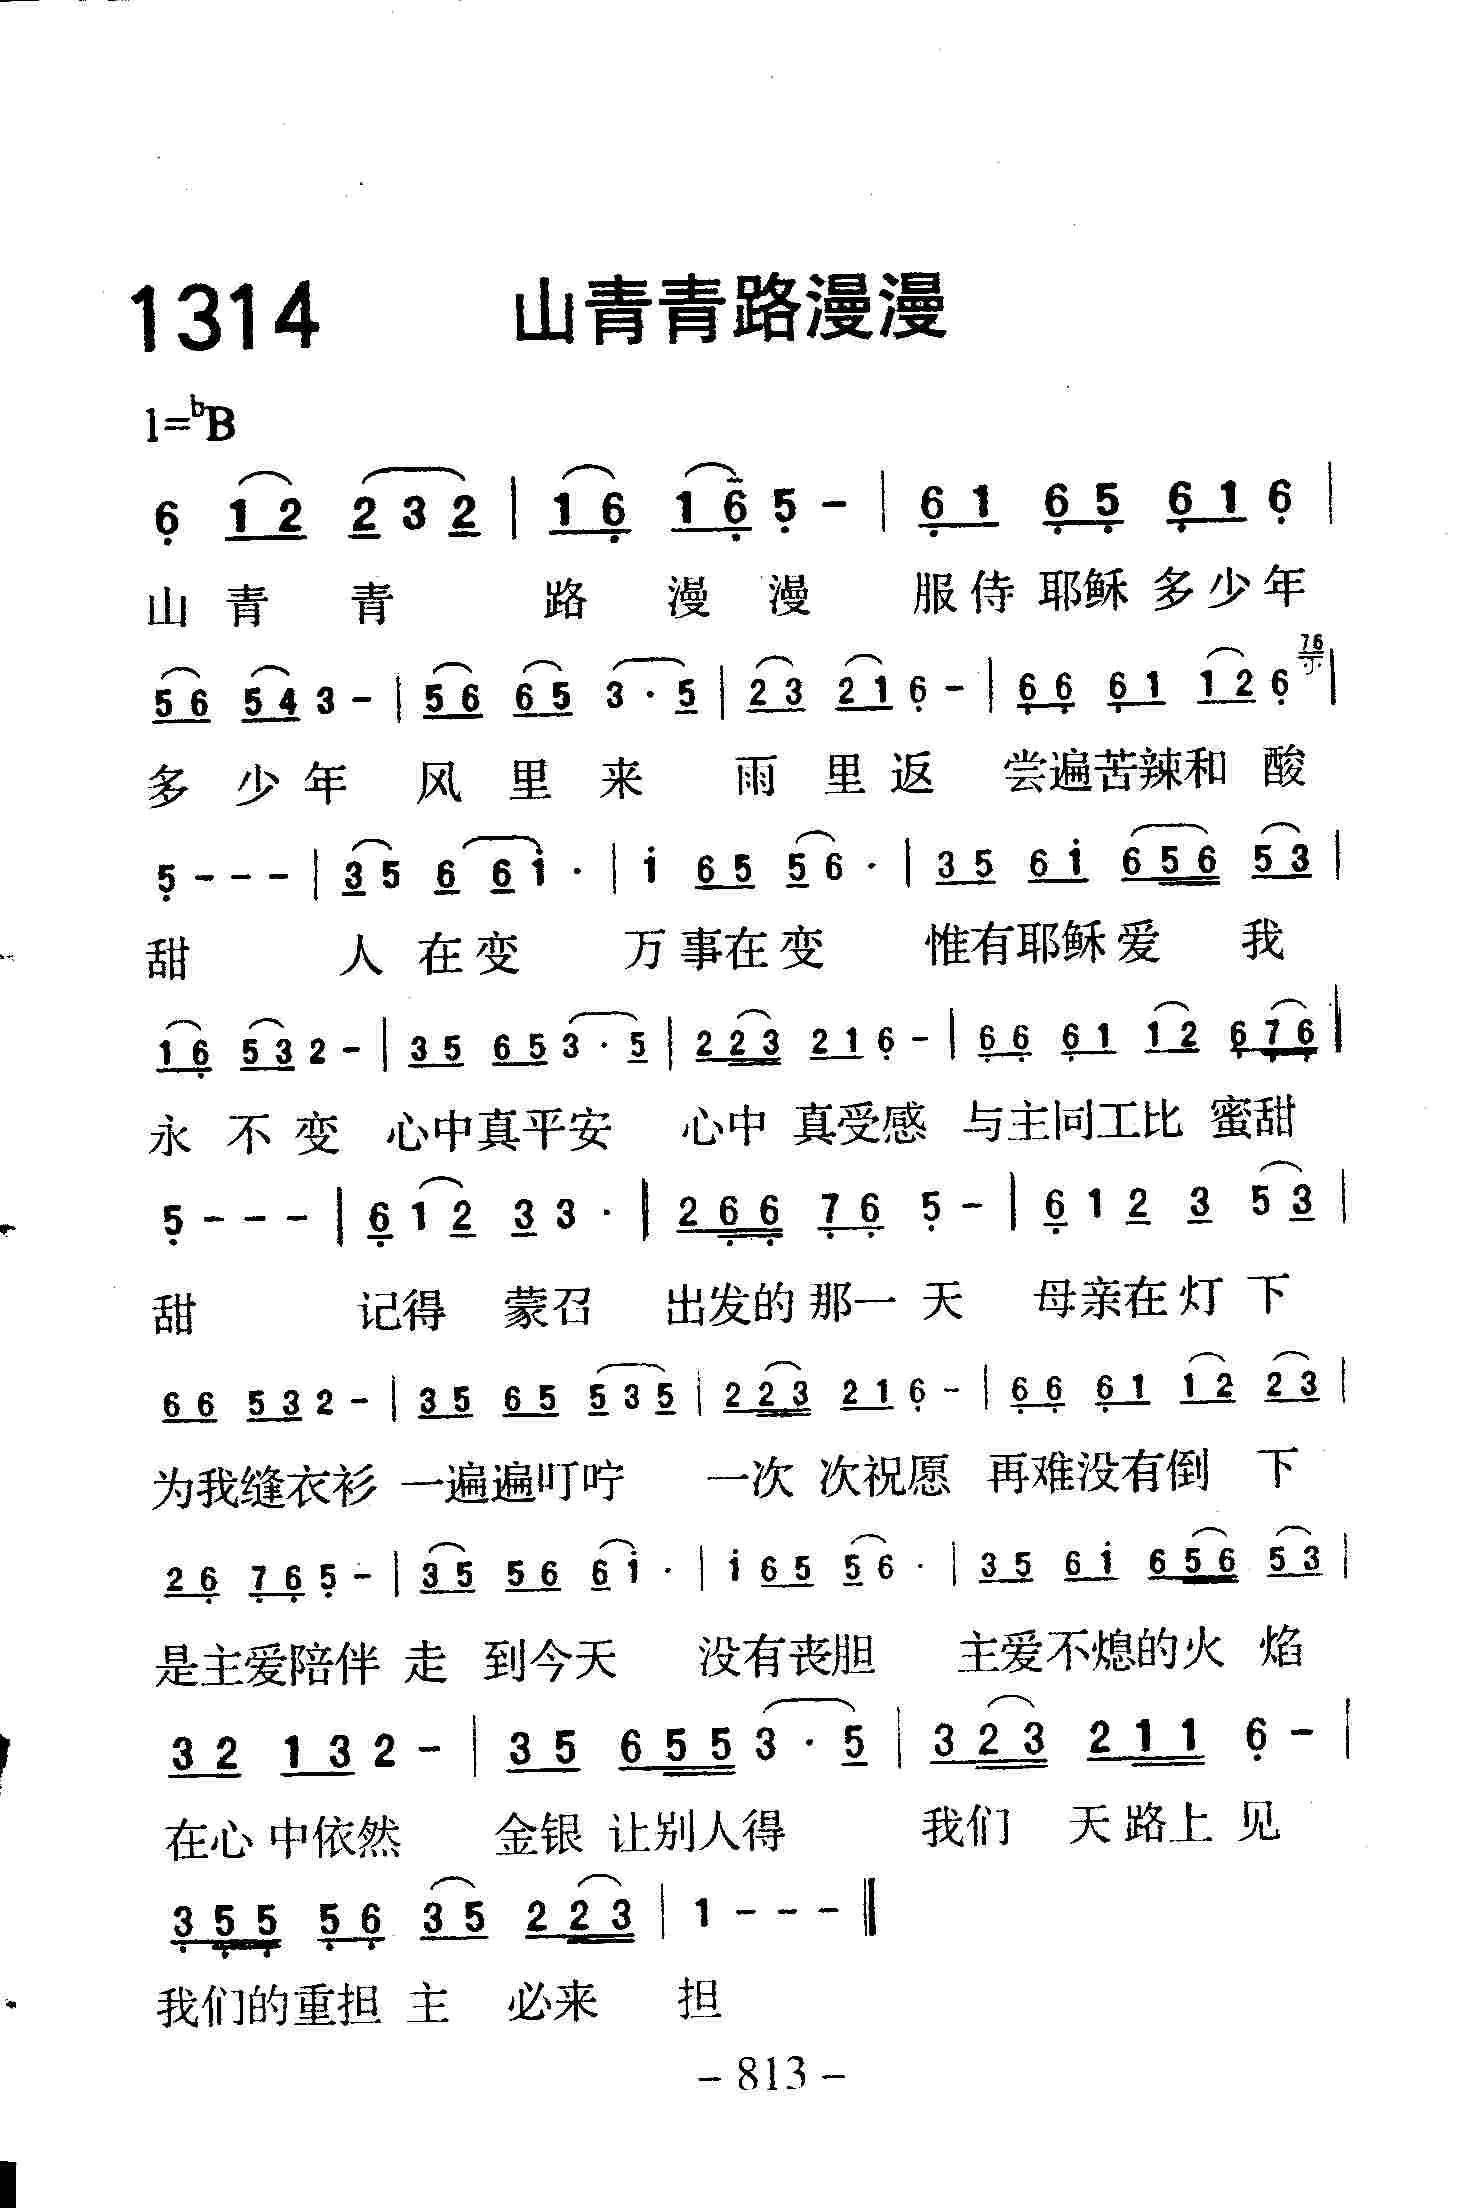 1314 山青青路漫漫
1=bB
6 1 2 2 3 2 | 1 6 1 6 5 - | 6 1 6 5 6 1 6 |
山 青 青 路 漫 漫 服 侍 耶稣 多 少 年
5 6 5 4 3 - | 5 6 6 5 3 · 5 | 2 3 2 1 6 - | 6 6 6 1 1 2 6 76 |
多 少 年 风 里 来 雨 里 返 尝遍苦辣和 酸
5 - - - | 3 5 6 6 1 · | 1 6 5 5 6 · | 3 5 6 1 6 5 6 5 3 |
甜 人 在 变 万 事在 变 惟有耶稣 爱 我
1 6 5 3 2 - | 3 5 6 5 3 · 5 | 2 2 3 2 1 6 - | 6 6 6 1 1 2 6 7 6 |
永 不 变 心中真平安 心中 真受感 与主同工比 蜜甜
5 - - - | 6 1 2 3 3 · | 2 6 6 7 6 5 - | 6 1 2 3 5 3 |
甜 记得 蒙召 出发的 那一 天 母亲在 灯 下
6 6 5 3 2 - | 3 5 6 5 5 3 5 | 2 2 3 2 1 6 - | 6 6 6 1 1 2 2 3 |
为我缝衣衫 一遍遍叮咛 一次 次祝愿 再难没有倒 下
2 6 7 6 5 - | 3 5 5 6 6 1 · | 1 6 5 5 6 · | 3 5 6 1 6 5 6 5 3 |
是主爱陪伴 走 到今天 没有丧胆 主爱不熄的火 焰
3 2 1 3 2 - | 3 5 6 5 5 3 · 5 | 3 2 3 2 1 1 6 - |
在心 中依然 金银 让别人得 我们 天 路上 见
3 5 5 5 6 3 5 2 2 3 | 1 - - - ‖
我们的重担 主 必来 担
- 813 -